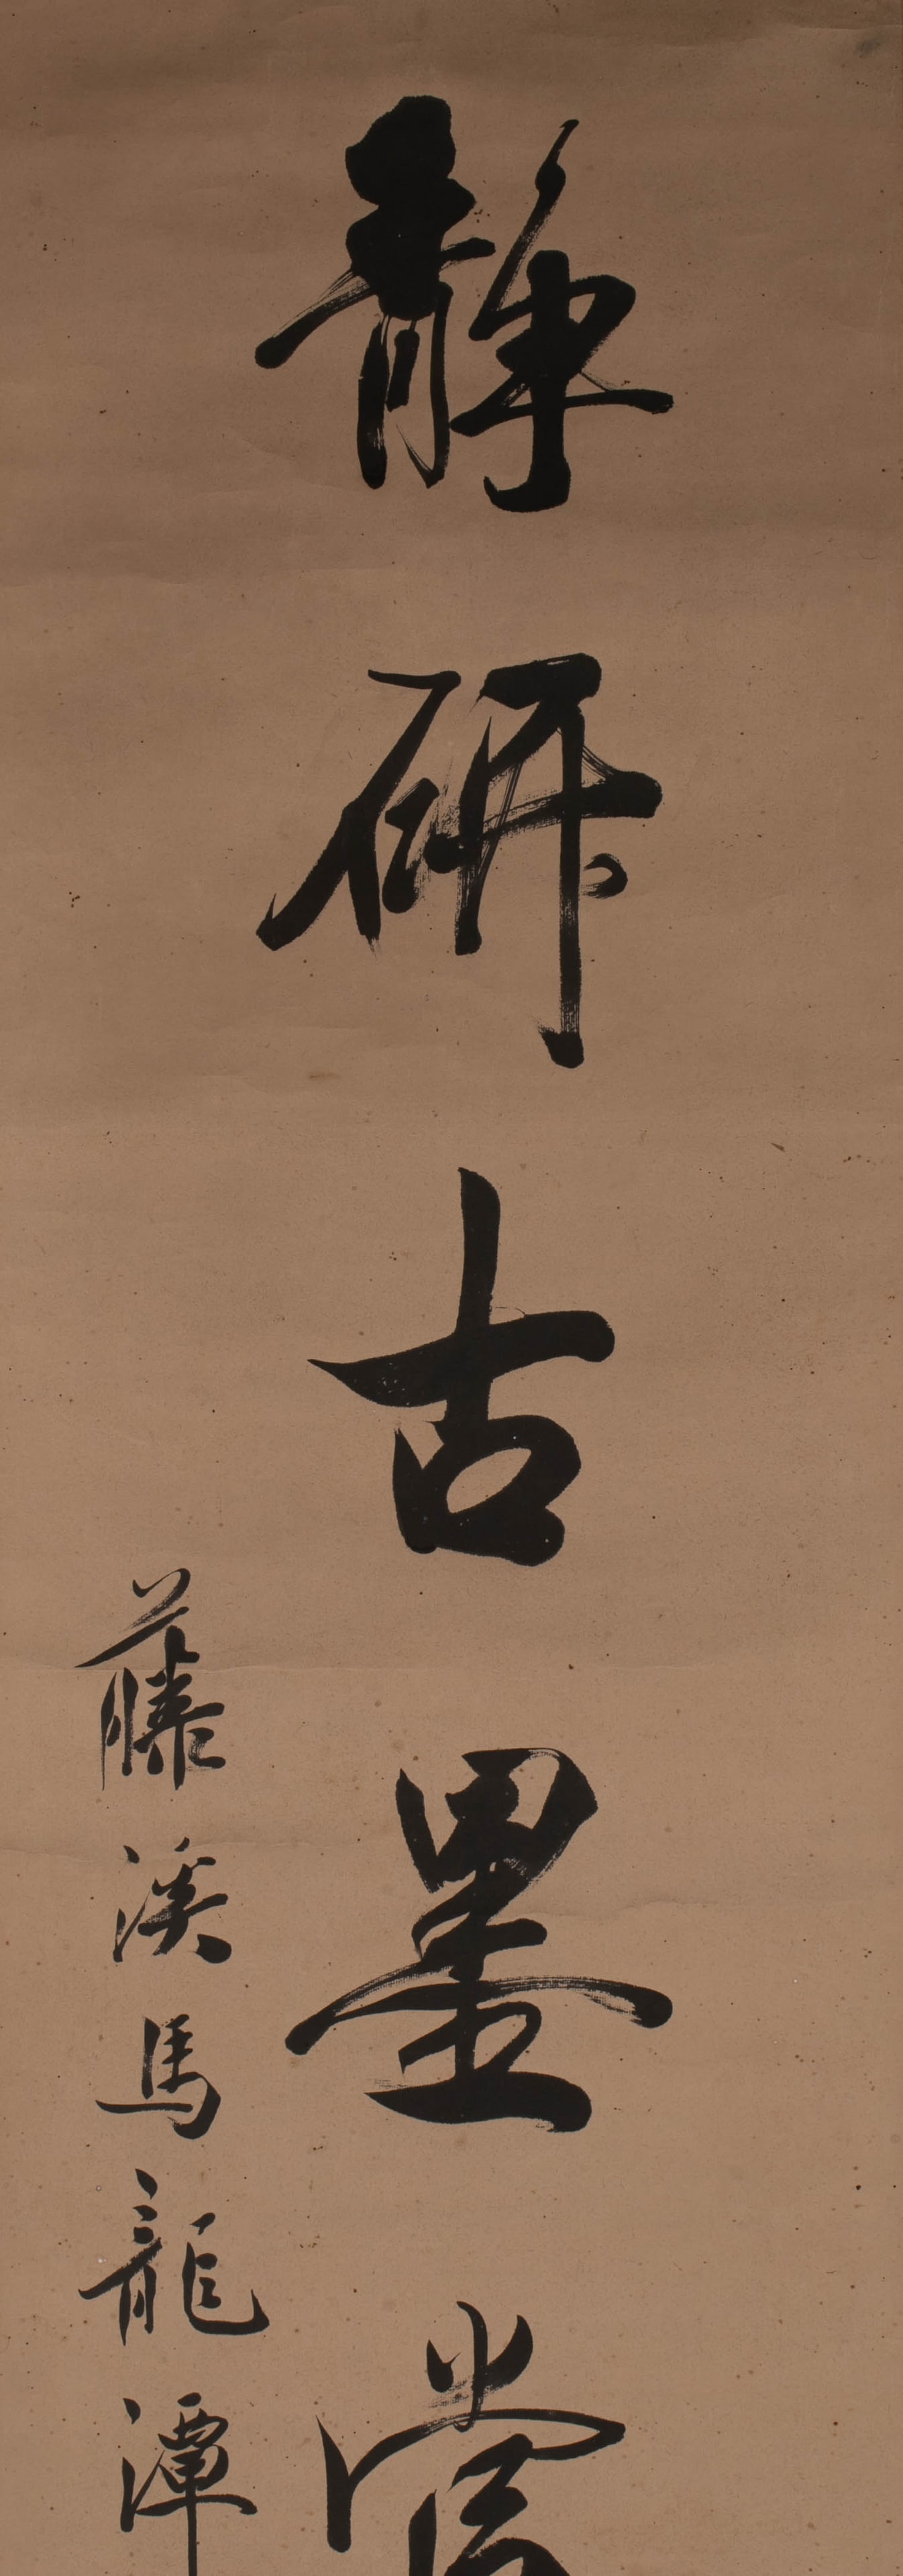 靜研古墨
藤溪馬龍潭